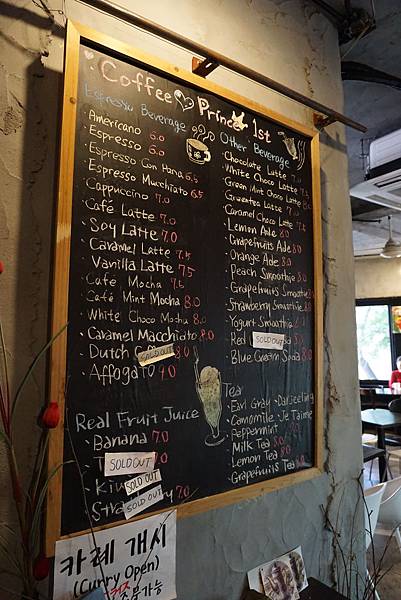 Coffee Prince 1st
Espresso Beverage
· Americano 6.0
· Espresso 6.0
· Espresso Con Pana 6.5
· Espresso Macchiato 6.5
· Cappuccino 7.0
· Café Latte 7.0
· Soy Latte 7.0
· Caramel Latte 7.5
· Vanilla Latte 7.5
· Cafe Mocha 7.5
· Café Mint Mocha 8.0
· White Choco Mocha 8.0
· Caramel Macchiato 8.0
· Dutch SOLD OUT 8.0
· Affogato 9.0
Real Fruit Juice
· Banana 7.0
SOLD OUT 7.0
· Kiwi SOLD OUT
· Str SOLD OUT 7.0
Other Beverage
· Chocolate Latte 7.0
· White Choco Latte 7.5
· Green Mint Choco Latte
· Greentea Latte 7.0
· Caramel Choco Latte 7.5
· Lemon Ade 8.0
· Grapefruits Ade 8.0
· Orange Ade 8.0
· Peach Smoothie 8.0
· Grapefruits Smoothie
· Strawberry Smoothie
· Yogurt Smoothie
· Red SOLD OUT
· Blue Cream Soda 8.0
Tea
· Earl Gray · Darjeeling
· Camomile · Je T'aime
· Peppermint
· Milk Tea 8.0
· Lemon Tea 8.0
· Grapefruits Tea 8.0
카레 개시
(Curry Open)
가능